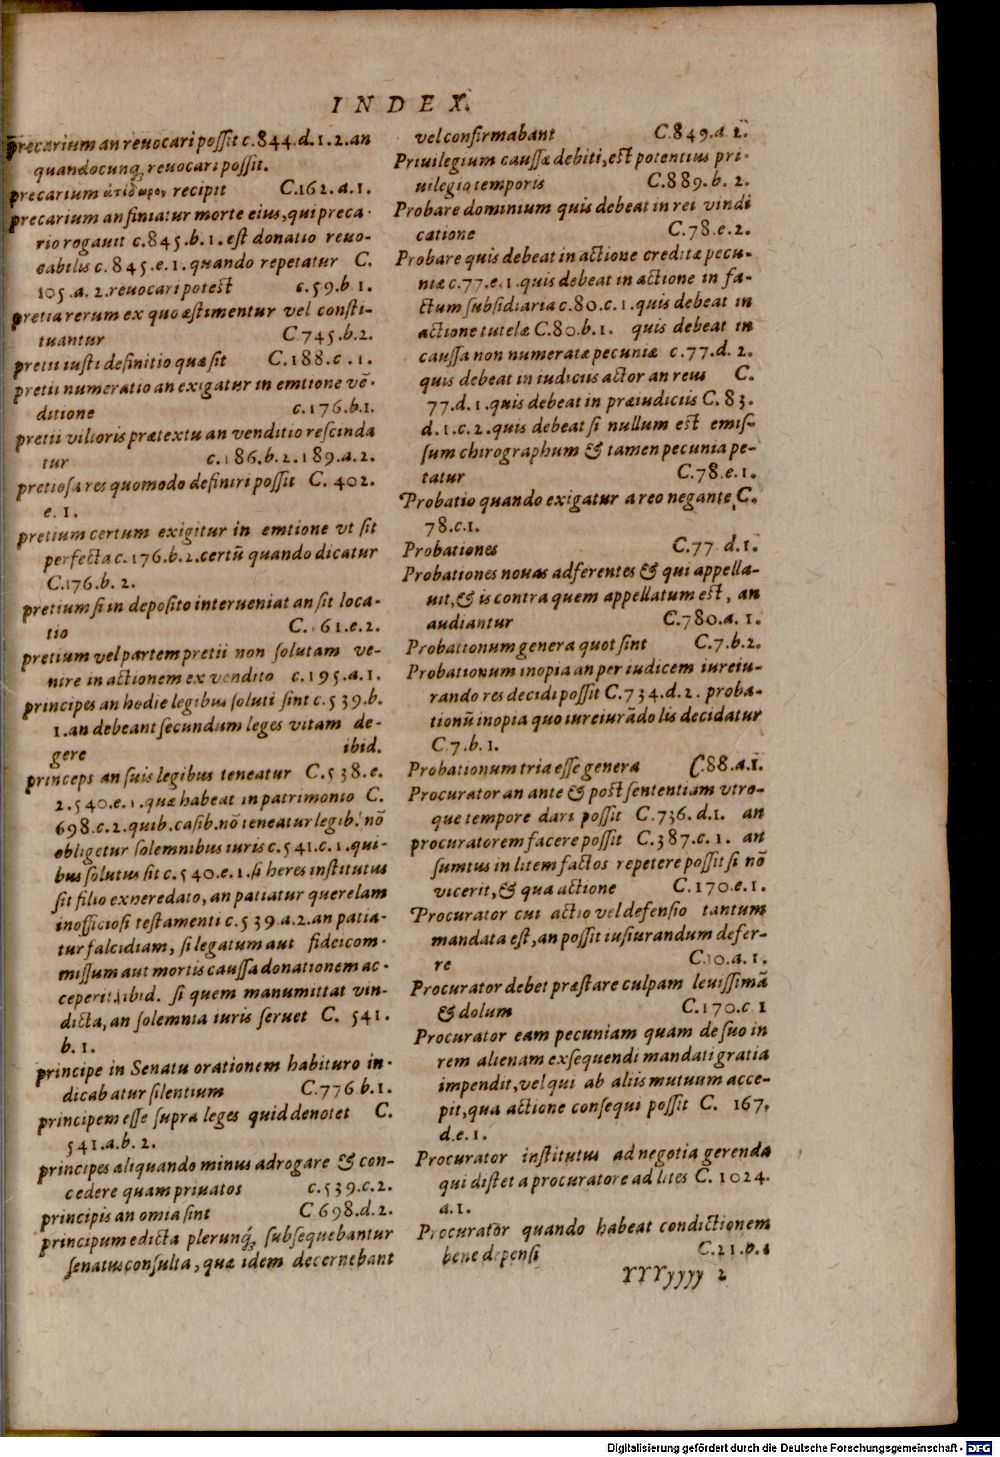 INDEX.
precarium an reuocari poſſit c.844.d.1.2.an
quandocunq; reuocari poſſit.
precarium ἀντίδωρον recipit C.162.a.1.
precarium an finiatur morte eius, qui preca-
rio rogauit c.845.b.1.eſt donatio reuo-
cabilis c.845.e.1.quando repetatur C.
105.a.2.reuocari poteſt c.59.b.1.
pretia rerum ex quo æſtimentur vel conſti-
tuantur C.745.b.2.
pretii iuſti definitio quæ ſit C.188.c.1.
pretii numeratio an exigatur in emtione vē-
ditione c.176.b.1.
pretii vilioris prætextu an venditio reſcinda
tur c.186.b.2.189.a.2.
pretioſa res quomodo definiri poſſit C. 402.
e.1.
pretium certum exigitur in emtione vt ſit
perfecta c.176.b.2.certū quando dicatur
C.176.b.2.
pretium ſi in depoſito interueniat an ſit loca-
tio C. 61.e.2.
pretium vel partem pretii non ſolutam ve-
nire in actionem ex vendito c.195.a.1.
principes an hodie legibus ſoluti ſint c.539.b.
1.an debeant ſecundum leges vitam de-
gere ibid.
princeps an ſuis legibus teneatur C.538.e.
2.540.e.1.quæ habeat in patrimonio C.
698.c.2.quib.caſib.nō teneatur legib.nō
obligetur ſolemnibus iuris c.541.c.1.qui-
bus ſolutus ſit c.540.e.1.ſi heres inſtitutus
ſit filio exheredato, an patiatur querelam
inofficioſi teſtamenti c.539.a.2.an patia-
tur falcidiam, ſi legatum aut fideicom-
miſſum aut mortis cauſſa donationem ac-
ceperit ibid. ſi quem manumittat vin-
dicta, an ſolemnia iuris ſeruet C. 541.
b.1.
principe in Senatu orationem habituro in-
dicabatur ſilentium C.776.b.1.
principem eſſe ſupra leges quid denotet C.
541.a.b.2.
principes aliquando minus adrogare & con-
cedere quam priuatos c.539.c.2.
principis an omia ſint C 698.d.2.
principum edicta plerunq; ſubſequebantur
ſenatusconſulta, quæ idem decernebant
vel confirmabant C.849.a 2.
Priuilegium cauſſæ debiti, eſt potentius pri-
uilegio temporis C.889.b.2.
Probare dominium quis debeat in rei vindi
catione C.78.e.2.
Probare quis debeat in actione creditæ pecu-
niæ c.77.e.1.quis debeat in actione in fa-
ctum ſubſidiaria c.80.c.1.quis debeat in
actione tutelæ C.80.b.1. quis debeat in
cauſſa non numeratæ pecuniæ c.77.d.2.
quis debeat in iudiciis actor an reus C.
77.d.1.quis debeat in præiudiciis C.83.
d.1.c.2.quis debeat ſi nullum eſt emiſ-
ſum chirographum & tamen pecunia pe-
tatur C.78.e.1.
Probatio quando exigatur a reo negante C.
78.c.1.
Probationes C.77 d.1.
Probationes nouas adferentes & qui appella-
uit, & is contra quem appellatum eſt, an
audiantur C.780.a.1.
Probationum genera quot ſint C.7.b.2.
Probationum inopia an per iudicem iureiu-
rando res decidi poſſit C.734.d.2. proba-
tionū inopia quo iureiurādo lis decidatur
C.7.b.1.
Probationum tria eſſe genera C.88.a.1.
Procurator an ante & poſt ſententiam vtro-
que tempore dari poſſit C.736.d.1. an
procuratorem facere poſſit C.387.c.1. an
ſumtus in litem factos repetere poſſit ſi nō
vicerit, & qua actione C.170.e.1.
Procurator cui actio vel defenſio tantum
mandata eſt, an poſſit iuſiurandum defer-
re C.10.a.1.
Procurator debet præſtare culpam leuiſſimā
& dolum C.170.c 1
Procurator eam pecuniam quam de ſuo in
rem alienam exſequendi mandati gratia
impendit, vel qui ab aliis mutuum acce-
pit, qua actione conſequi poſſit C. 167.
d.e.1.
Procurator inſtitutus ad negotia gerenda
qui diſtet a procuratore ad lites C.1024.
a.1.
Procurator quando habeat condictionem
bene depenſi C.21.b.1
YYYyyyy 2
Digitalisierung gefördert durch die Deutsche Forschungsgemeinschaft - DFG